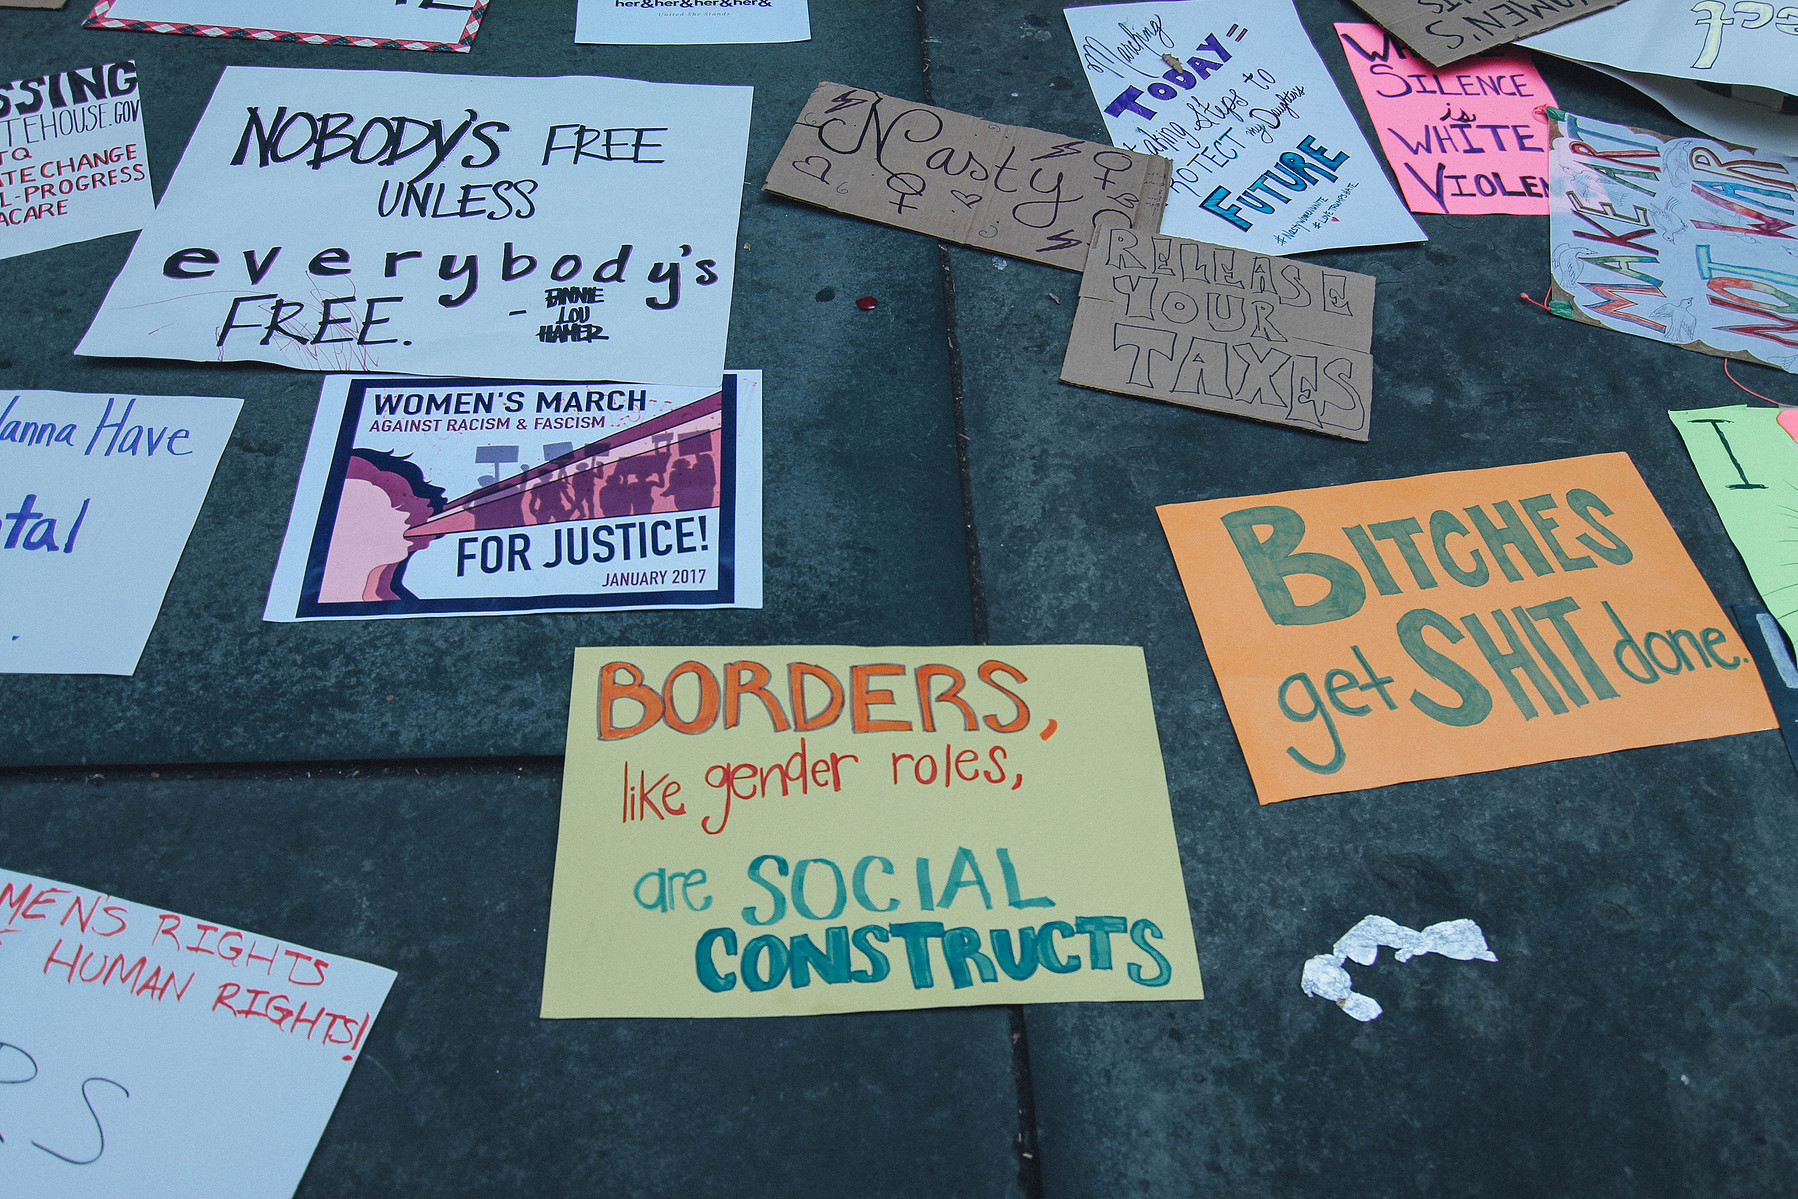 her&her&her&her&
United She Stands
SSING
TEHOUSE.GOV
TQ
ATE CHANGE
L-PROGRESS
ACARE
NOBODY'S FREE
UNLESS
everybody's
FREE.
- FANNIE
LOU
HAMER
Nasty
Marching
TODAY =
Steps to
PROTECT my Daughters
FUTURE
RELEASE
YOUR
TAXES
SILENCE
is
WHITE
VIOLEN
MAKE ART
NOT WAR
Wanna Have
tal
WOMEN'S MARCH
AGAINST RACISM & FASCISM
FOR JUSTICE!
JANUARY 2017
I
BITCHES
get SHIT done.
BORDERS,
like gender roles,
are SOCIAL
CONSTRUCTS
MEN'S RIGHTS
HUMAN RIGHTS!
RS